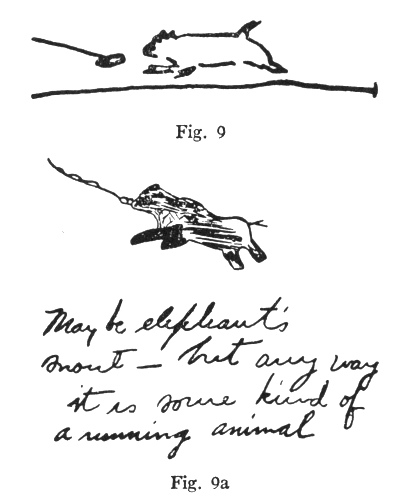 Fig. 9
May be elephant's
snout — but any way
it is some kind of
a running animal
Fig. 9a